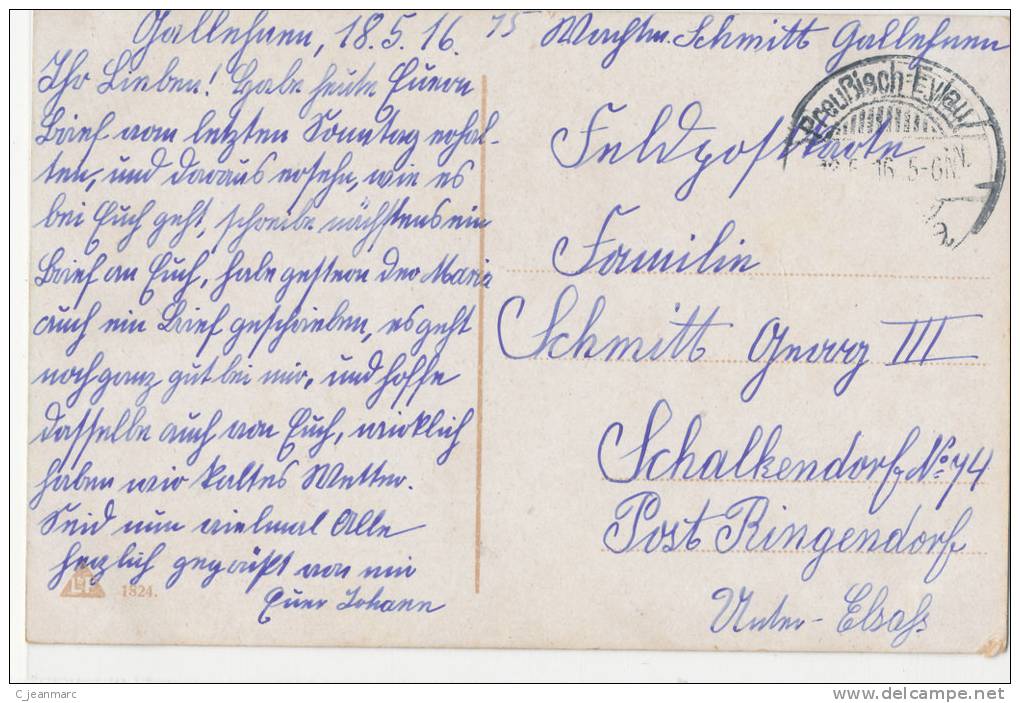 Gallehnen, 18.5.16.
Ihr Lieben! Habe heute Euern
Brief vom letzten Sonntag erhal-
ten, und daraus ersehn, wie es
bei Euch geht, schreibe nächstens ein
Brief an Euch, habe gestern der Marie
auch ein Brief geschrieben, es geht
noch ganz gut bei mir, und hoffe
dasselbe auch von Euch, wirklich
haben wir kaltes Wetter.
Seid nun vielmal Alle
herzlich gegrüßt von mir
Euer Johann
1824.
75
Wachtm. Schmitt Gallehnen
Preußisch-Eylau
16 5-6N.
Feldpostkarte
Familie
Schmitt Georg III
Schalkendorf No 74
Post Ringendorf
Unter-Elsaß
C_jeanmarc
delcampe.net